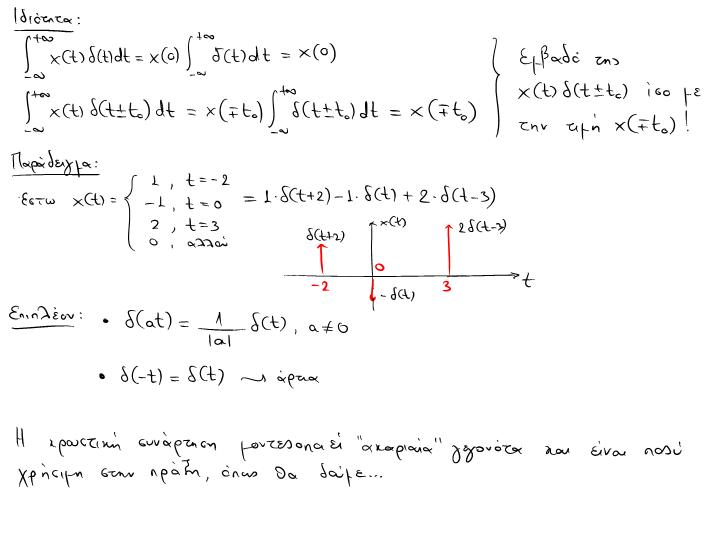 Ιδιότητα:
∫_{-∞}^{+∞} x(t) δ(t) dt = x(0) ∫_{-∞}^{+∞} δ(t) dt = x(0)
∫_{-∞}^{+∞} x(t) δ(t±t₀) dt = x(∓t₀) ∫_{-∞}^{+∞} δ(t±t₀) dt = x(∓t₀)
Εμβαδό της
x(t) δ(t±t₀) ίσο με
την τιμή x(∓t₀)!
Παράδειγμα:
Έστω x(t) = { 1, t=-2
-1, t=0
2, t=3
0, αλλού
= 1·δ(t+2) - 1·δ(t) + 2·δ(t-3)
δ(t+2) x(t) 2δ(t-3)
0
-2 -δ(t) 3 t
Επιπλέον: • δ(at) = 1/|a| δ(t), a≠0
• δ(-t) = δ(t) ⤳ άρτια
Η κρουστική συνάρτηση μοντελοποιεί "ακαριαία" γεγονότα και είναι πολύ
χρήσιμη στην πράξη, όπως θα δούμε...